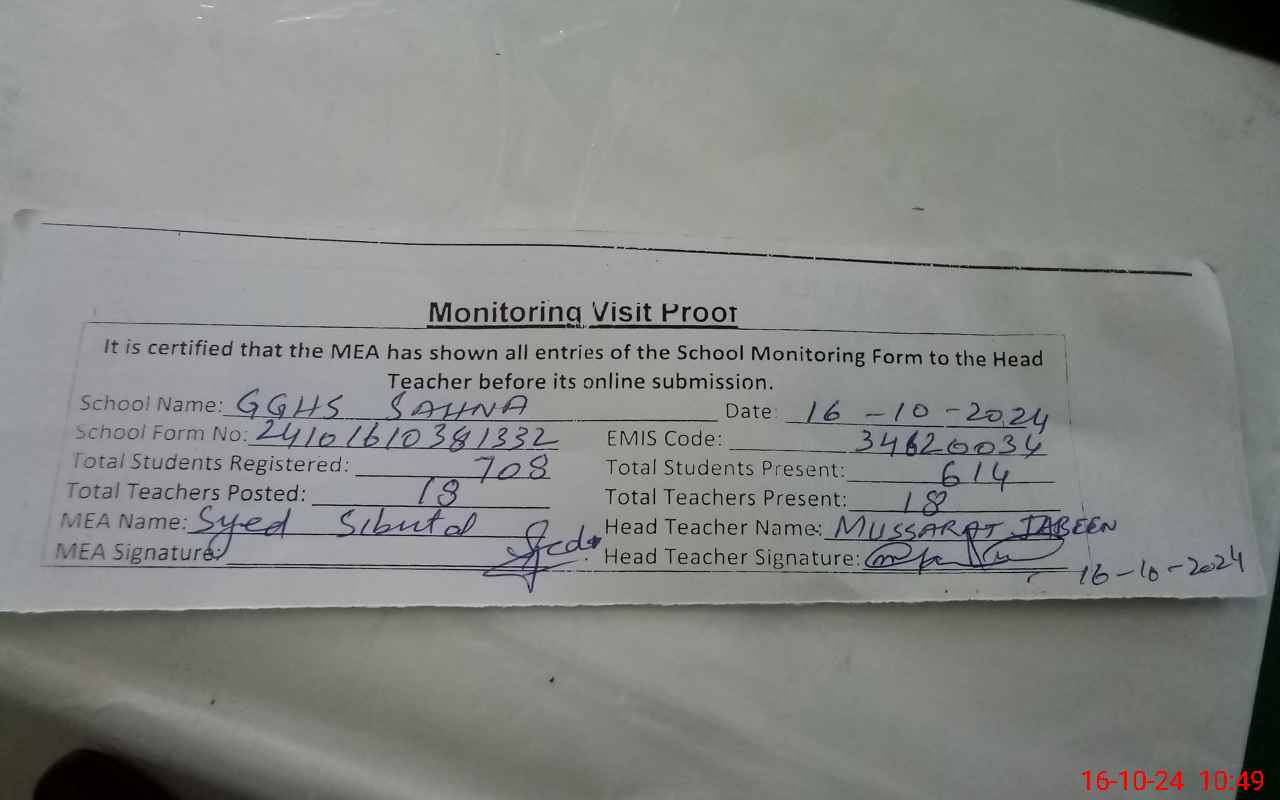 Monitoring Visit Proof
It is certified that the MEA has shown all entries of the School Monitoring Form to the Head
Teacher before its online submission.
School Name: GGHS SAHNA Date: 16-10-2024
School Form No: 24101610381332 EMIS Code: 34620034
Total Students Registered: 708 Total Students Present: 614
Total Teachers Posted: 18 Total Teachers Present: 18
MEA Name: Syed Sibutal Head Teacher Name: MUSSARAT JABEEN
MEA Signature: Head Teacher Signature: 16-10-2024
16-10-24 10:49